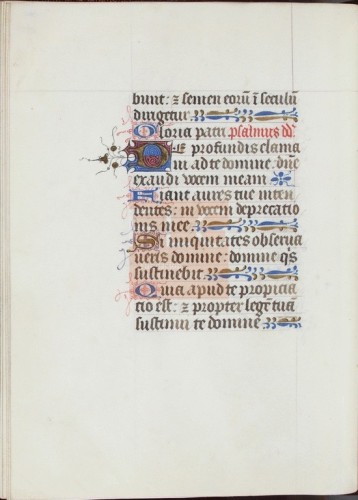 bunt: ⁊ semen eorū ī seculū
dirigetur.
Gloria patri psalmus dd̄.
De profundis clama
ui ad te domine: dn̄e
exaudi vocem meam.
Fiant aures tue inten
dentes: in vocem deprecatio
nis mee.
Si iniquitates obserua
ueris domine: domine q̄s
sustinebit.
Quia apud te propicia
cio est: ⁊ propter legē tuā
sustinui te domine